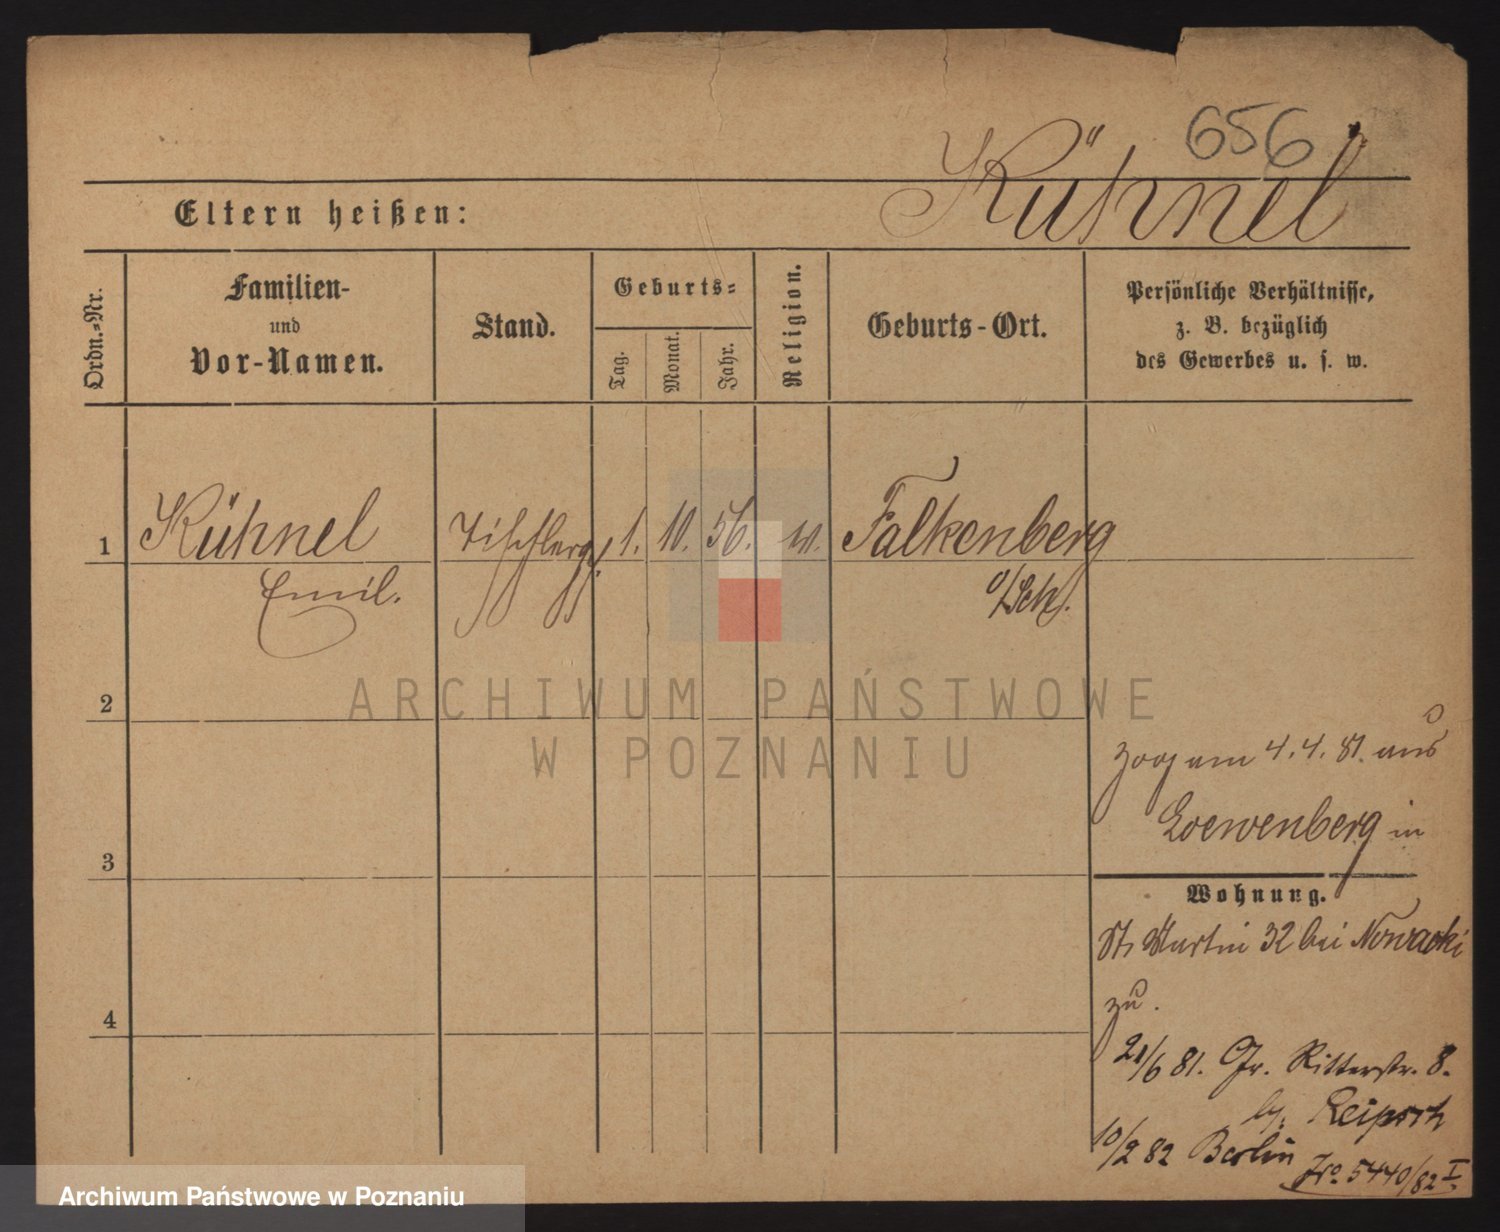 656
Kühnel
Eltern heißen:
Ordn.-Nr.
Familien-
und
Vor-Namen.
Stand.
Geburts-
Tag.
Monat.
Jahr.
Religion.
Geburts-Ort.
Persönliche Verhältnisse,
z. B. bezüglich
des Gewerbes u. s. w.
1
Kühnel
Emil.
Tischlerges.
1.
10.
56.
Falkenberg
o/Schl.
2
ARCHIWUM PAŃSTWOWE
W POZNANIU
zog am 4.4.81. aus
Loewenberg in
3
Wohnung.
St. Martin 32 bei Nowacki
zu.
4
21/6 81. Gr. Ritterstr. 8.
10/2 82 Berlin
5440/82 I.
Archiwum Państwowe w Poznaniu